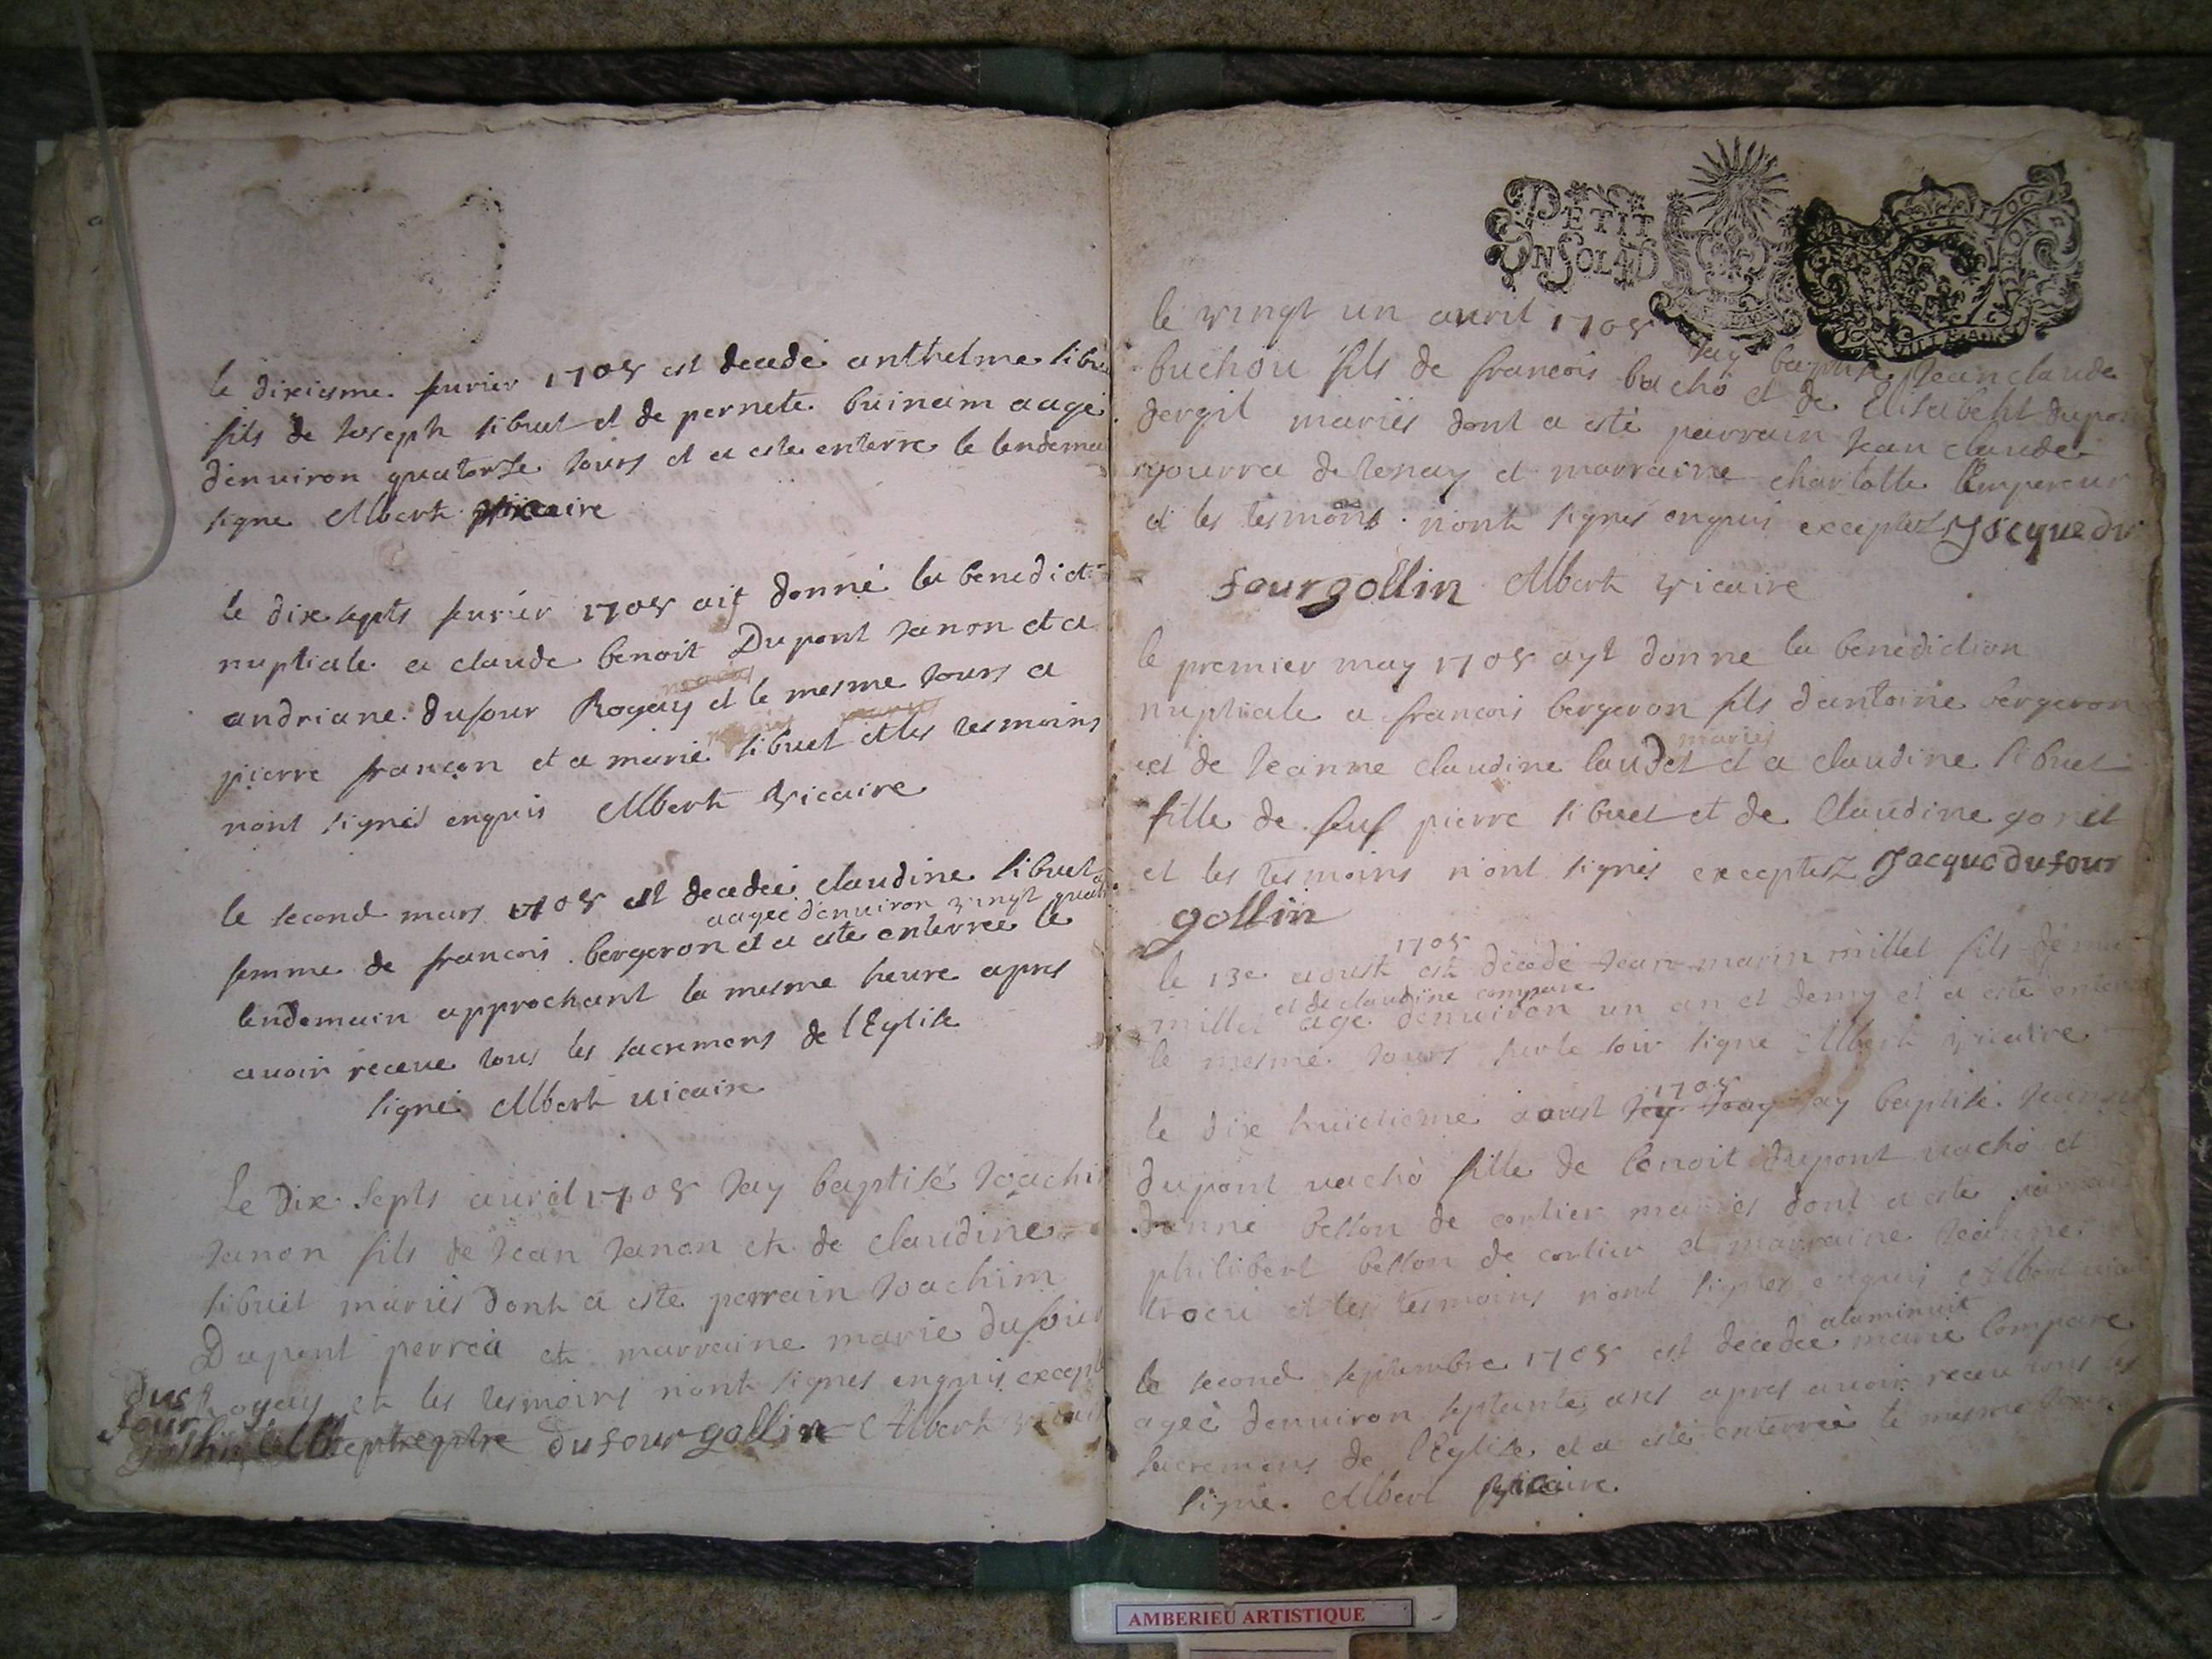 le dixiesme feurier 1705 est decedé anthelme sibue
fils de Joseph sibuet et de pernete buinam aagé
denuiron quatorse Jours et a este enterre le lendema
signe Albert vicaire
le dix septs feurier 1705 ait donné la benedict
nuptiale a claude benoit Dupont Janon et a
andriane dufour Rogay et le mesme Jours a
pierre françon et a marie sibuet et les tesmoins
nont signés enquis Albert vicaire
le second mars 1705 est decedeé claudine sibuet
aageé denuiron vingt quat
femme de francois bergeron et a este enterreé le
lendemain approchant la mesme heure apres
auoir receue tous les sacremens de l'Eglise
signé Albert uicaire
Le Dix septs auril 1705 Jay baptisé Joachi
Janon fils de Jean Janon et de claudine
sibuet mariés dont a esté parrain Joachim
Dupont perrea et marraine marie dufour
Rogay et les tesmoins nont signes enquis except
dufour gollin Albert vicair
PETIT
UN SOL 4 D
1700
le vingt un auril 1705 Jay baptisé Jean claude
buchou fils de francois bacho et de Elisabeht dupon
dergit mariés dont a esté parrain Jean claude
gourra de tenay et marraine charlotte Lempereur
et les tesmoins nont signés enquis exceptez Jacque du
four gollin Albert vicaire
le premier may 1705 ayt donne la benediction
nuptiale a francois bergeron fils dantoine bergeron
mariés
et de Jeanne claudine laudet et a claudine sibuet
fille de feuf pierre sibuet et de Claudine gonet
et les tesmoins n'ont signés exceptez Jacque dufour
gollin
1705
le 13e aoust est decedé Jean marin millet fils de
et de claudine compare
millet agé denuiron un an et demy et a esté enterre
le mesme Jours sur le soir signe Albert vicaire
1705
le dix huictieme aoust Jay baptisé Jeanne
dupont vachó fille de benoit dupont vachó et
Janne besson de corlier mariés dont a este parrain
philibert besson de corlier et marraine Jeanne
trocu et les tesmoins nont signes enquis Albert uicai
alaminuit
le second septembre 1705 est decedeé marie Compare
ageé denuiron septante ans apres auoir receu tous les
sacremens de l'Eglise et a esté enterreé le mesme Jour
signé Albert vicaire
AMBERIEU ARTISTIQUE